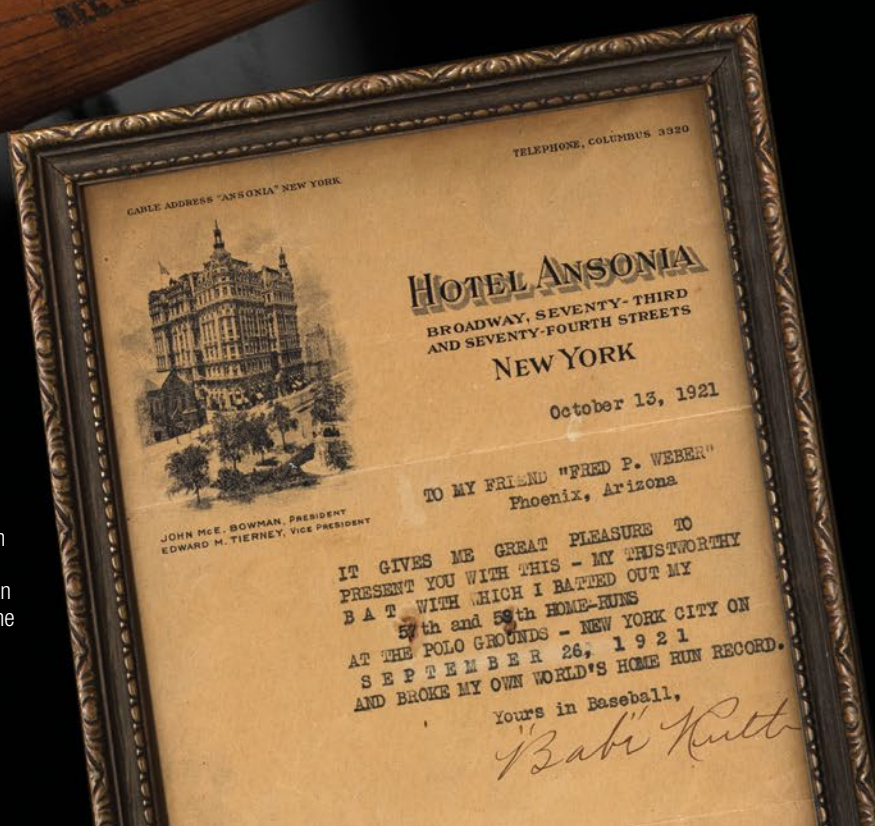 CABLE ADDRESS "ANSONIA" NEW YORK
TELEPHONE, COLUMBUS 3320
HOTEL ANSONIA
BROADWAY, SEVENTY-THIRD
AND SEVENTY-FOURTH STREETS
NEW YORK
October 13, 1921
JOHN McE. BOWMAN, PRESIDENT
EDWARD M. TIERNEY, VICE PRESIDENT
TO MY FRIEND "FRED P. WEBER"
Phoenix, Arizona
IT GIVES ME GREAT PLEASURE TO
PRESENT YOU WITH THIS - MY TRUSTWORTHY
B A T WITH WHICH I BATTED OUT MY
57th and 58th HOME-RUNS
AT THE POLO GROUNDS - NEW YORK CITY ON
S E P T E M B E R 26, 1 9 2 1
AND BROKE MY OWN WORLD'S HOME RUN RECORD.
Yours in Baseball,
"Babe" Ruth